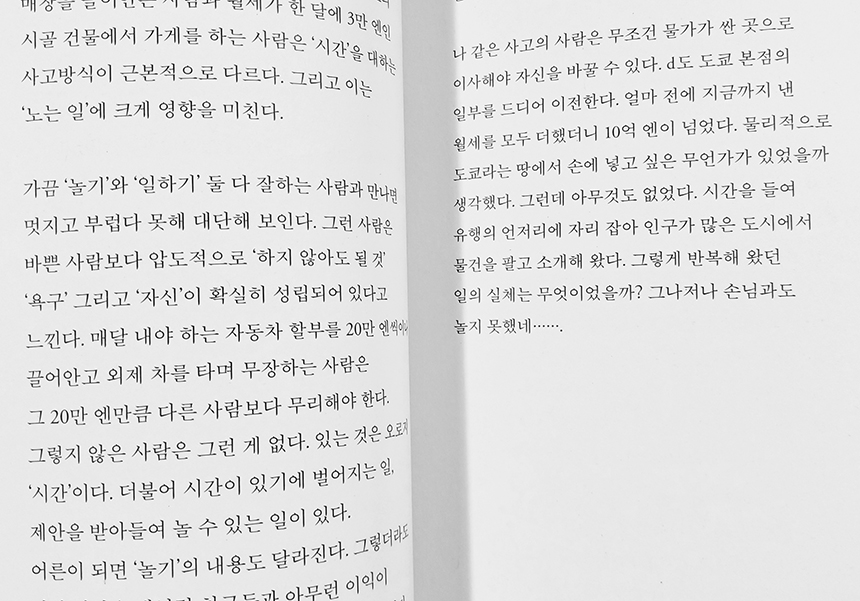 매장을 사람과 월세가 한 달에 3만 엔인
시골 건물에서 가게를 하는 사람은 ‘시간’을 대하는
사고방식이 근본적으로 다르다. 그리고 이는
‘노는 일’에 크게 영향을 미친다.
가끔 ‘놀기’와 ‘일하기’ 둘 다 잘하는 사람과 만나면
멋지고 부럽다 못해 대단해 보인다. 그런 사람은
바쁜 사람보다 압도적으로 ‘하지 않아도 될 것’
‘욕구’ 그리고 ‘자신’이 확실히 성립되어 있다고
느낀다. 매달 내야 하는 자동차 할부를 20만 엔씩이나
끌어안고 외제 차를 타며 무장하는 사람은
그 20만 엔만큼 다른 사람보다 무리해야 한다.
그렇지 않은 사람은 그런 게 없다. 있는 것은 오로지
‘시간’이다. 더불어 시간이 있기에 벌어지는 일,
제안을 받아들여 놀 수 있는 일이 있다.
어른이 되면 ‘놀기’의 내용도 달라진다. 그렇더라도
아무런 이익이
나 같은 사고의 사람은 무조건 물가가 싼 곳으로
이사해야 자신을 바꿀 수 있다. d도 도쿄 본점의
일부를 드디어 이전한다. 얼마 전에 지금까지 낸
월세를 모두 더했더니 10억 엔이 넘었다. 물리적으로
도쿄라는 땅에서 손에 넣고 싶은 무언가가 있었을까
생각했다. 그런데 아무것도 없었다. 시간을 들여
유행의 언저리에 자리 잡아 인구가 많은 도시에서
물건을 팔고 소개해 왔다. 그렇게 반복해 왔던
일의 실체는 무엇이었을까? 그나저나 손님과도
놀지 못했네…….